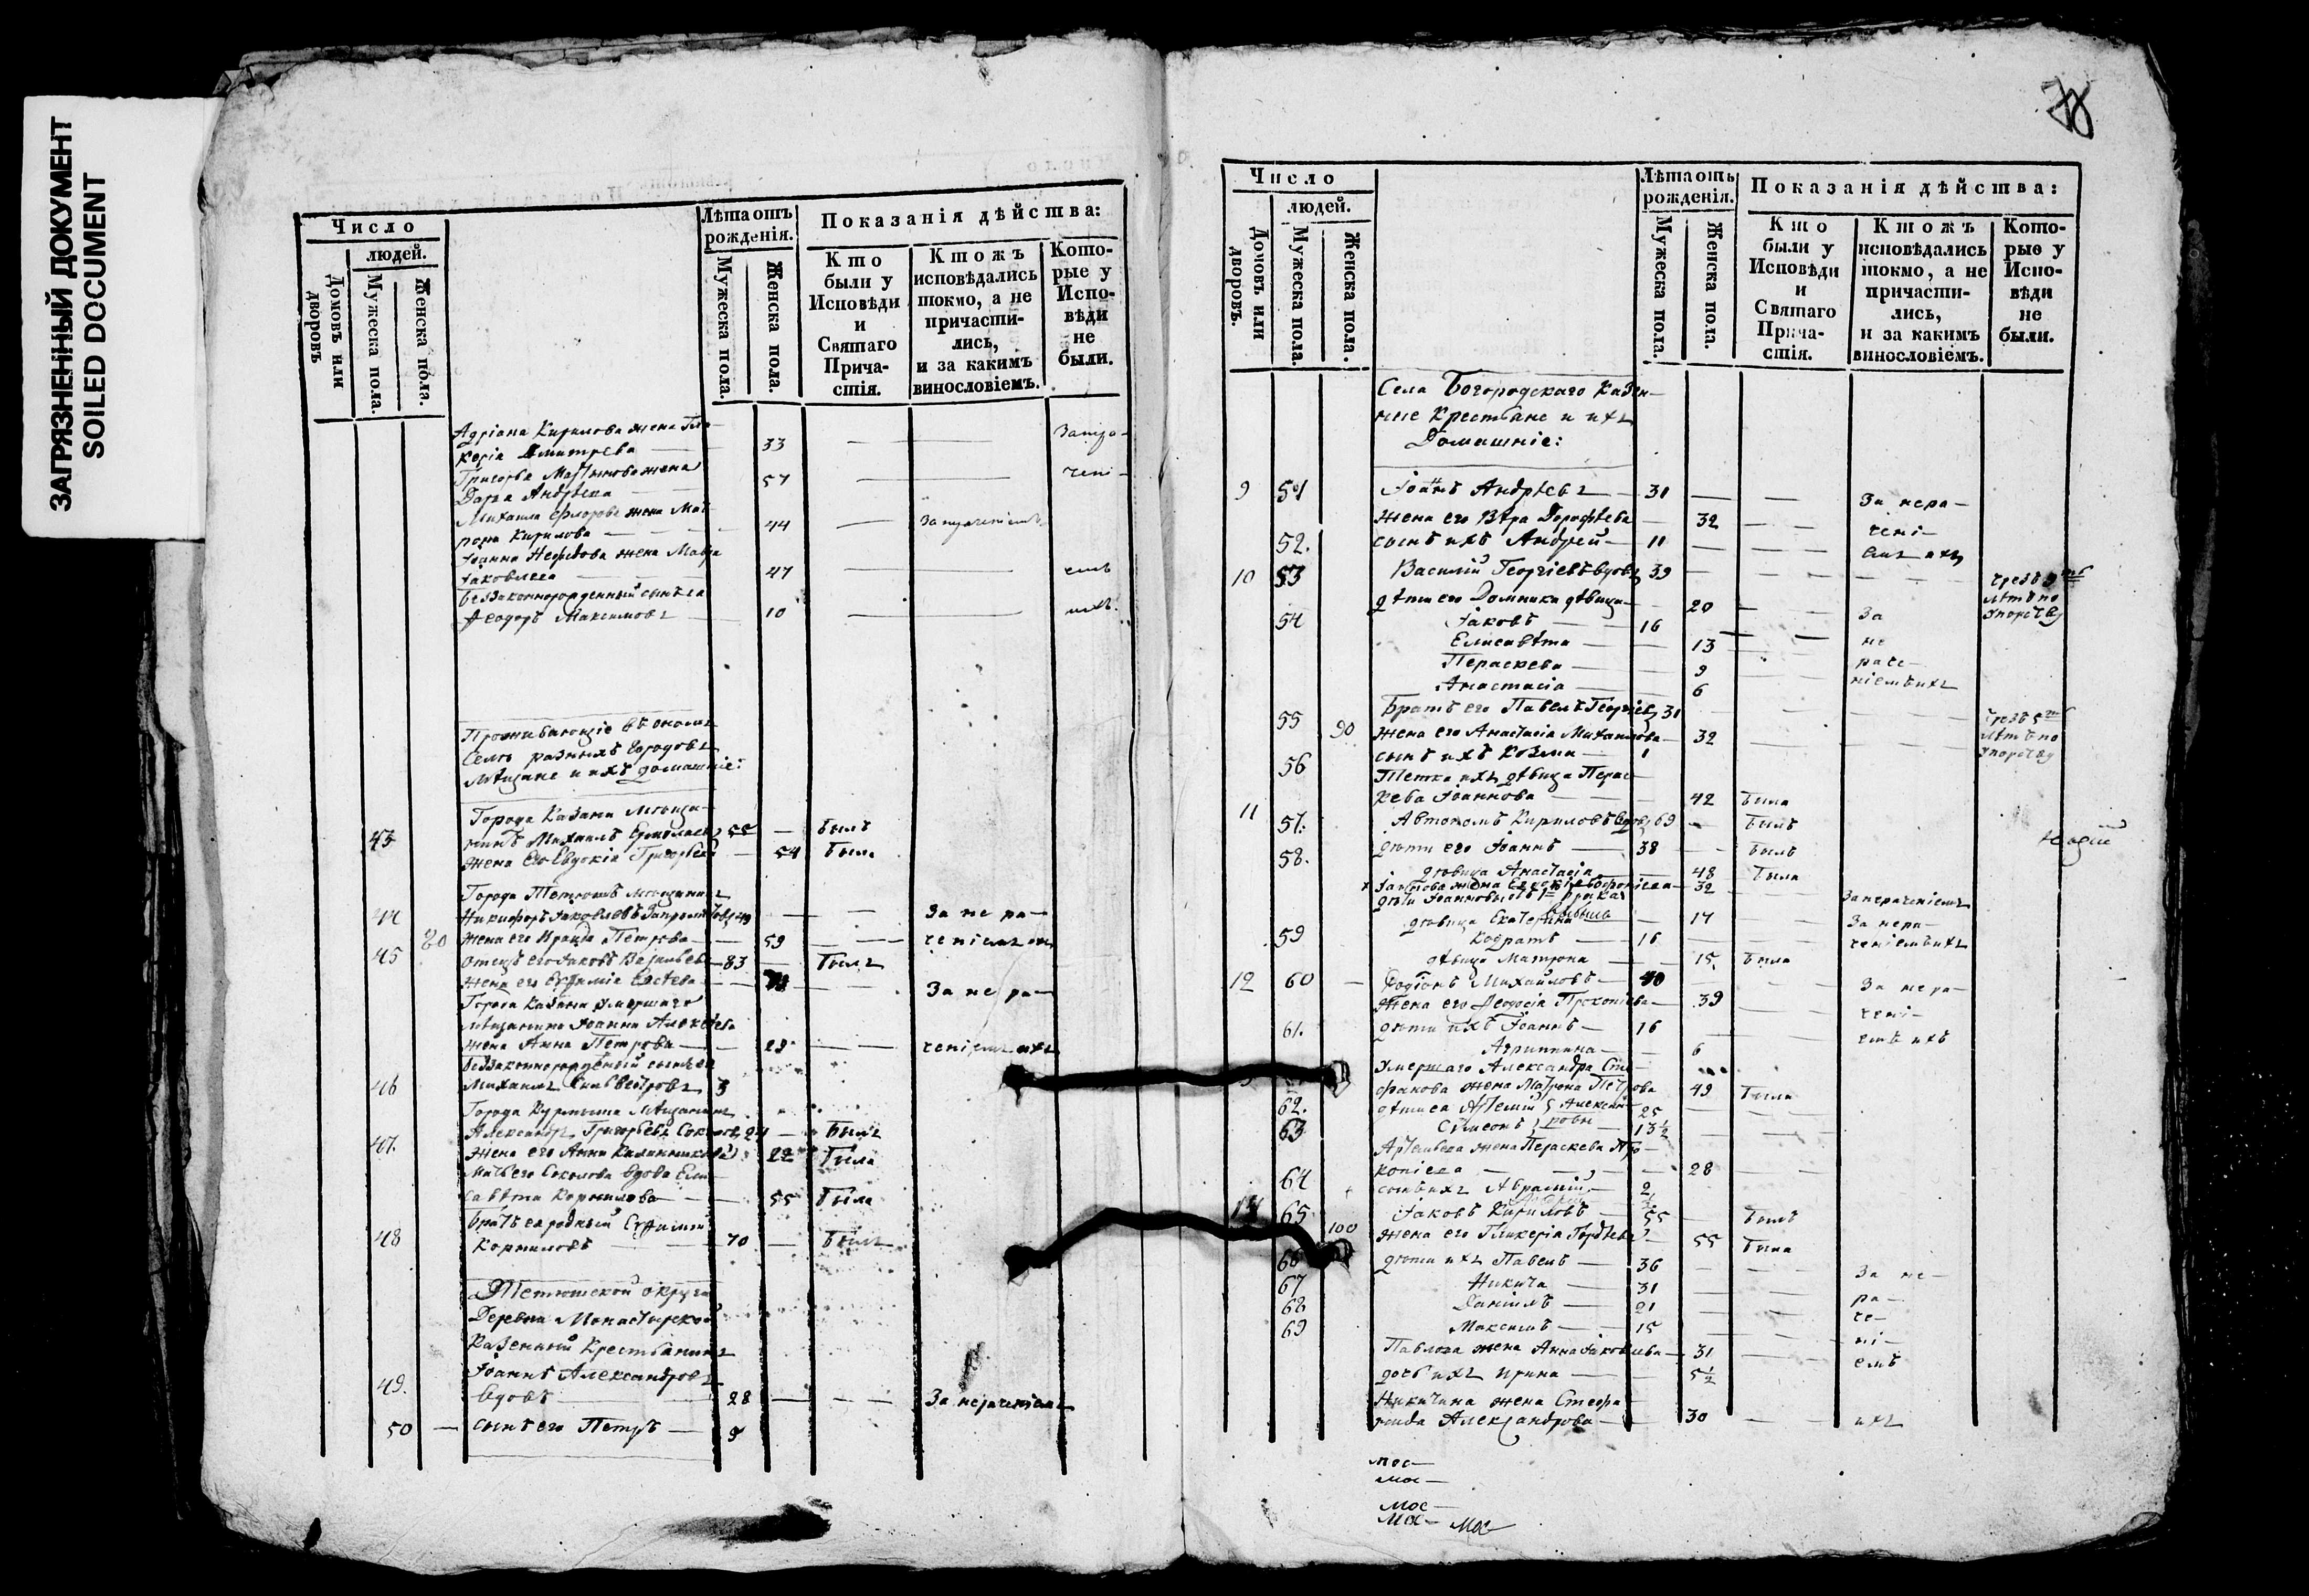 ЗАГРЯЗНЕННЫЙ ДОКУМЕНТ
SOILED DOCUMENT
Число
людей.
Домовъ или дворовъ
Мужеска пола.
Женска пола.
Лѣта отъ рожденія.
Мужеска пола.
Женска пола.
Показанія дѣйства:
Кто были у Исповѣди и Святаго Прича-стія.
Ктожъ исповѣдались токмо, а не причасти-лись, и за какимъ винословіемъ.
Кото-рые у Испо-вѣди не были.
Адріана Кирилова жена Гли-
керіа Дмитрева — 33 — —
Григорья Мартынова жена
Дарья Андрѣева 57 — — чені-
Михаила Флорова жена Мат-
рона Кирилова — 44 — За нераченіемъ
Іоанна Нефедова жена Мавра
Іаковлева 47 — — емъ
Беззаконнорожденный сынъ ея
Ѳеодоръ Максимовъ — 10 — — ихъ.
Проживающіе въ ономъ
Селѣ разныхъ городовъ
Мѣщане и ихъ домашніе:
Города Казани мѣща-
43 нинъ Михаилъ Ермолаевъ 55 — былъ
жена его Евдокія Григорьева — 54 была
Города Тетюшъ мѣщанинъ
44 Никифоръ Іаковлевъ 49 — — За не ра-
80 жена его Ираида Петрова — 59 — — ченіемъ их
45 отецъ его Іаковъ Васильевъ — 83 — былъ
жена его Евфиміа — — За не ра-
Города Казани умершаго
мѣщанина Іоанна Алексѣева
жена Анна Петрова — 29 — — ченіемъ ихъ
Беззаконнорожденный сынъ ея
46 Михаилъ Силвестровъ 3
Города Курмыша Мѣщанинъ
47. Александръ Григорьевъ Соколовъ 24 — былъ
жена его Анна Калинникова 22 была
Мать его Соколова вдова Ели-
савѣта Корнилова — — 55 была
братъ ея родный Евфимій
48 Корниловъ — 70 — былъ
Тетюшской округи
Деревни Монастырской
Казенный Крестьянинъ
Іоаннъ Александровъ
49. вдовъ 28 — — — За нераченіемъ
50 — сынъ его Петръ — 9
78
Число
людей.
Домовъ или дворовъ.
Мужеска пола.
Женска пола.
Лѣта отъ рожденія.
Мужеска пола.
Женска пола.
Показанія дѣйства:
Кто были у Исповѣди и Святаго Прича-стія.
Ктожъ исповѣдались токмо, а не причасти-лись, и за какимъ винословіемъ.
Кото-рыe у Испо-вѣди не были.
Села Богородскаго Казен-
ные Крестьяне и ихъ
Домашніе:
9 51 Іоаннъ Андрѣевъ — 31 — — За нера-
жена его Вѣра Дорофѣева — 32 — — чені-
52. сынъ ихъ Андрей — 11 — — емъ ихъ
10 53 Василій Георгіевъ вдовъ 39 — — — — Чрезъ 9
лѣтъ по
упорству
дѣти его Домника дѣвица — 20 — —
54 Іаковъ — 16 За
Елисавѣта — — 13 — — не
Параскева — — 9 раче-
Анастасіа — — 6 ніемъ ихъ
55 Братъ его Павелъ Георгіевъ 31 — — Чрезъ 5
лѣтъ по
упорству
90 жена его Анастасіа Михаилова — 32
56 сынъ ихъ Козма — 1
Тетка ихъ дѣвица Парас-
кева Іоаннова — 42 была
11 57. Автономъ Кириловъ вдовъ 69 — былъ
58. дѣти его Іоаннъ — 38 — былъ
дѣвица Анастасіа — 48 была
Іоаннова жена — 32 — За нераченіемъ
дѣвица Екатерина — 17 — За нера-
59 Кодратъ — 16 — — ченіемъ ихъ
дѣвица Матрона — — 15. была
12 60 — Родіонъ Михайловъ — 40 — — За не ра-
жена его Ѳеодосіа Прокопіева — 39 чені-
61. дѣти ихъ Іоаннъ — 16 — — емъ ихъ
Агриппина — — 6
Умершаго Александра Сте-
фанова жена Матрона Петрова 49 была
62. дѣти ея Артемій 25
63 Сѵмеонъ 13½
Артемьева жена Параскева Про-
копіева — — 28
64 сынъ ихъ Аврамій 2
14 65 Іаковъ Кириловъ — 55 — былъ
100 жена его Гликеріа Гордѣева — 55 была
66 дѣти ихъ Павелъ — 36 — — За не-
67 Никита — 31 — — ра-
68 Даніилъ — 21 — — че-
69 Максимъ — 15 — — ні-
Павлова жена Анна Іаковлева — 31 — — емъ
дочь ихъ Ирина — — 5½
Никитина жена Стефа-
нида Александрова — 30 — ихъ
мос-
мос-
мос-
мос- мос